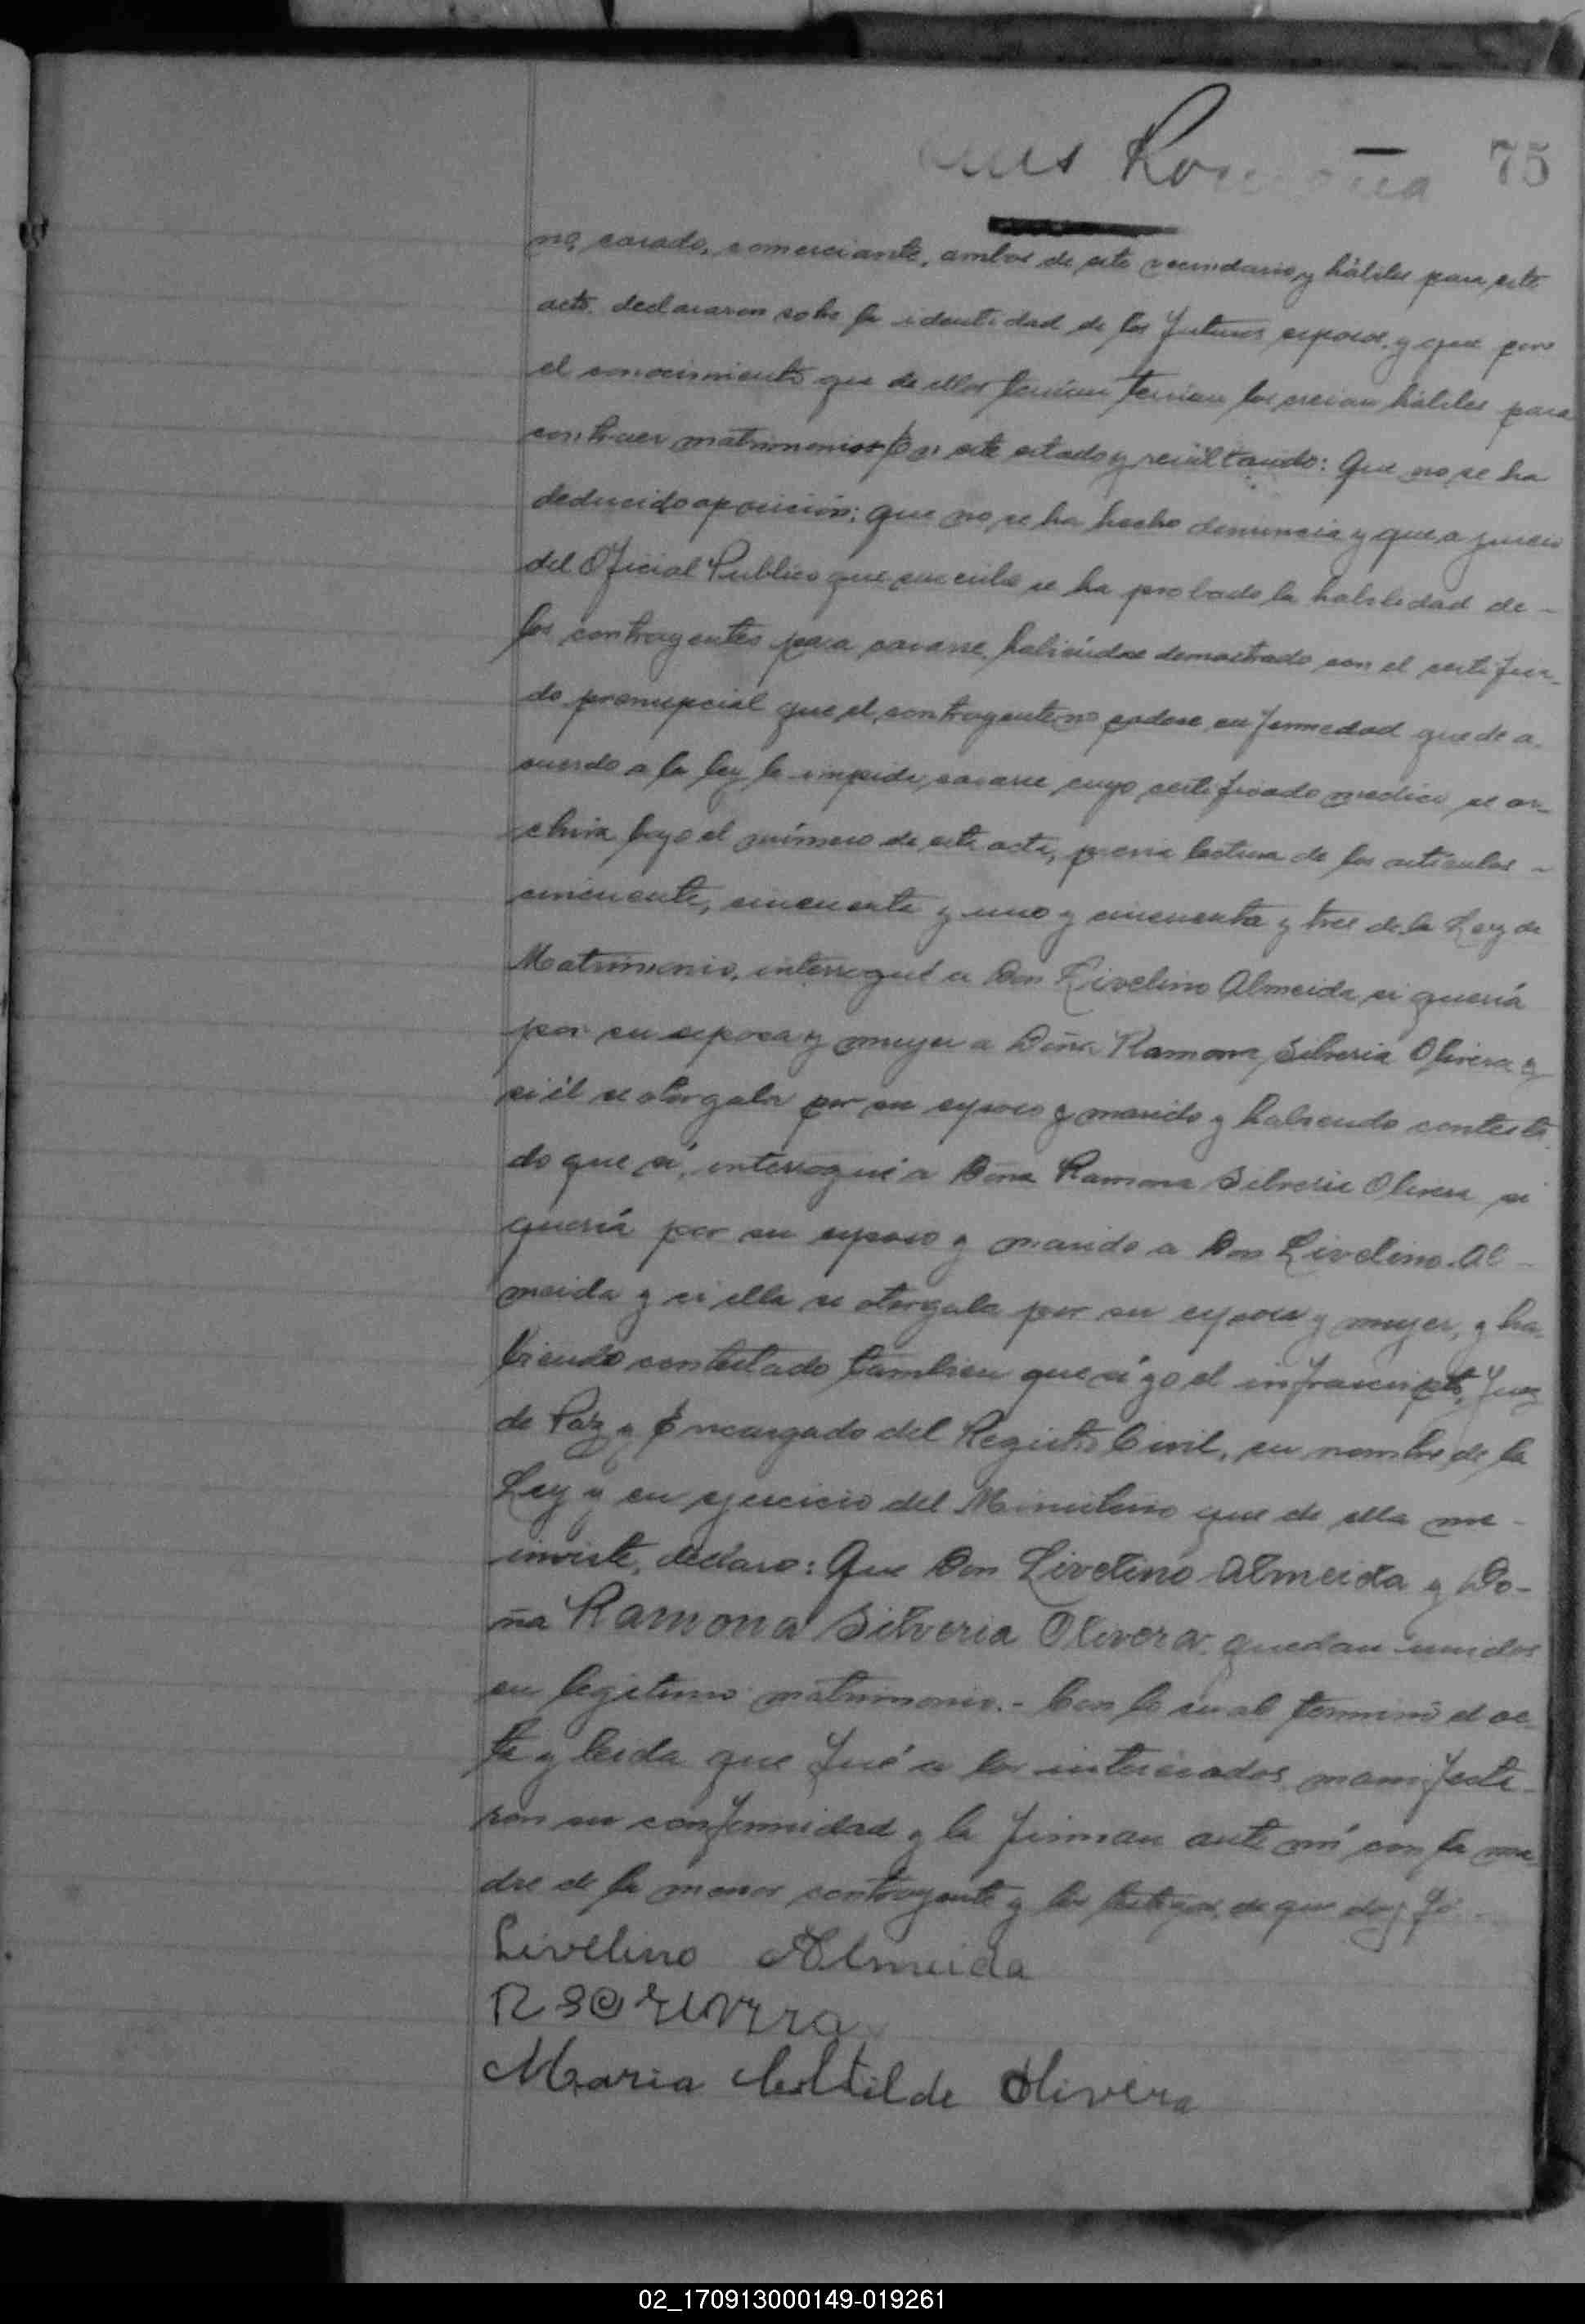 75
no, casado, comerciante, ambos de este vecindario y hábiles para este
acto, declararon sobre la identidad de los futuros esposos, y que por
el conocimiento que de ellos tenian tenian los creian hábiles para
contraer matrimonio. En este estado y resultando: Que no se ha
deducido oposición; que no se ha hecho denuncia y que a juicio
del Oficial Publico que suscribe se ha probado la habilidad de -
los contrayentes para casarse, habiéndose demostrado con el certifica-
do prenupcial que el contrayente no padece enfermedad que de a-
cuerdo a la ley le impida casarse, cuyo certificado medico se ar-
chiva bajo el número de este acta, previa lectura de los artículos -
cincuenta, cincuenta y uno y cincuenta y tres de la Ley de
Matrimonio, interrogué a Don Livelino Almeida, si queriá
por su esposa y mujer a Doña Ramona Silveria Olivera y
si él se otorgaba por su esposo y marido y habiendo contesta
do que sí, interrogué a Doña Ramona Silveria Olivera si
queriá por su esposo y marido a Don Livelino Al-
meida y si ella se otorgaba por su esposa y mujer, y ha-
biendo contestado tambien que sí yo el infrascripto, Juez
de Paz y Encargado del Registro Civil, en nombre de la
Ley y en ejercicio del Ministerio que de ella me -
inviste, declaro: Que Don Livelino Almeida y Do-
ña Ramona Silveria Olivera quedan unidos
en legitimo matrimonio.- Con lo cual terminó el ac-
ta y leida que fué a los interesados, manifesta-
ron su conformidad y la firman ante mí con la ma-
dre de la menor contrayente y los testigos, de que doy fé -
Livelino Almeida
R S Olivera
Maria Olivera
02_170913000149-019261